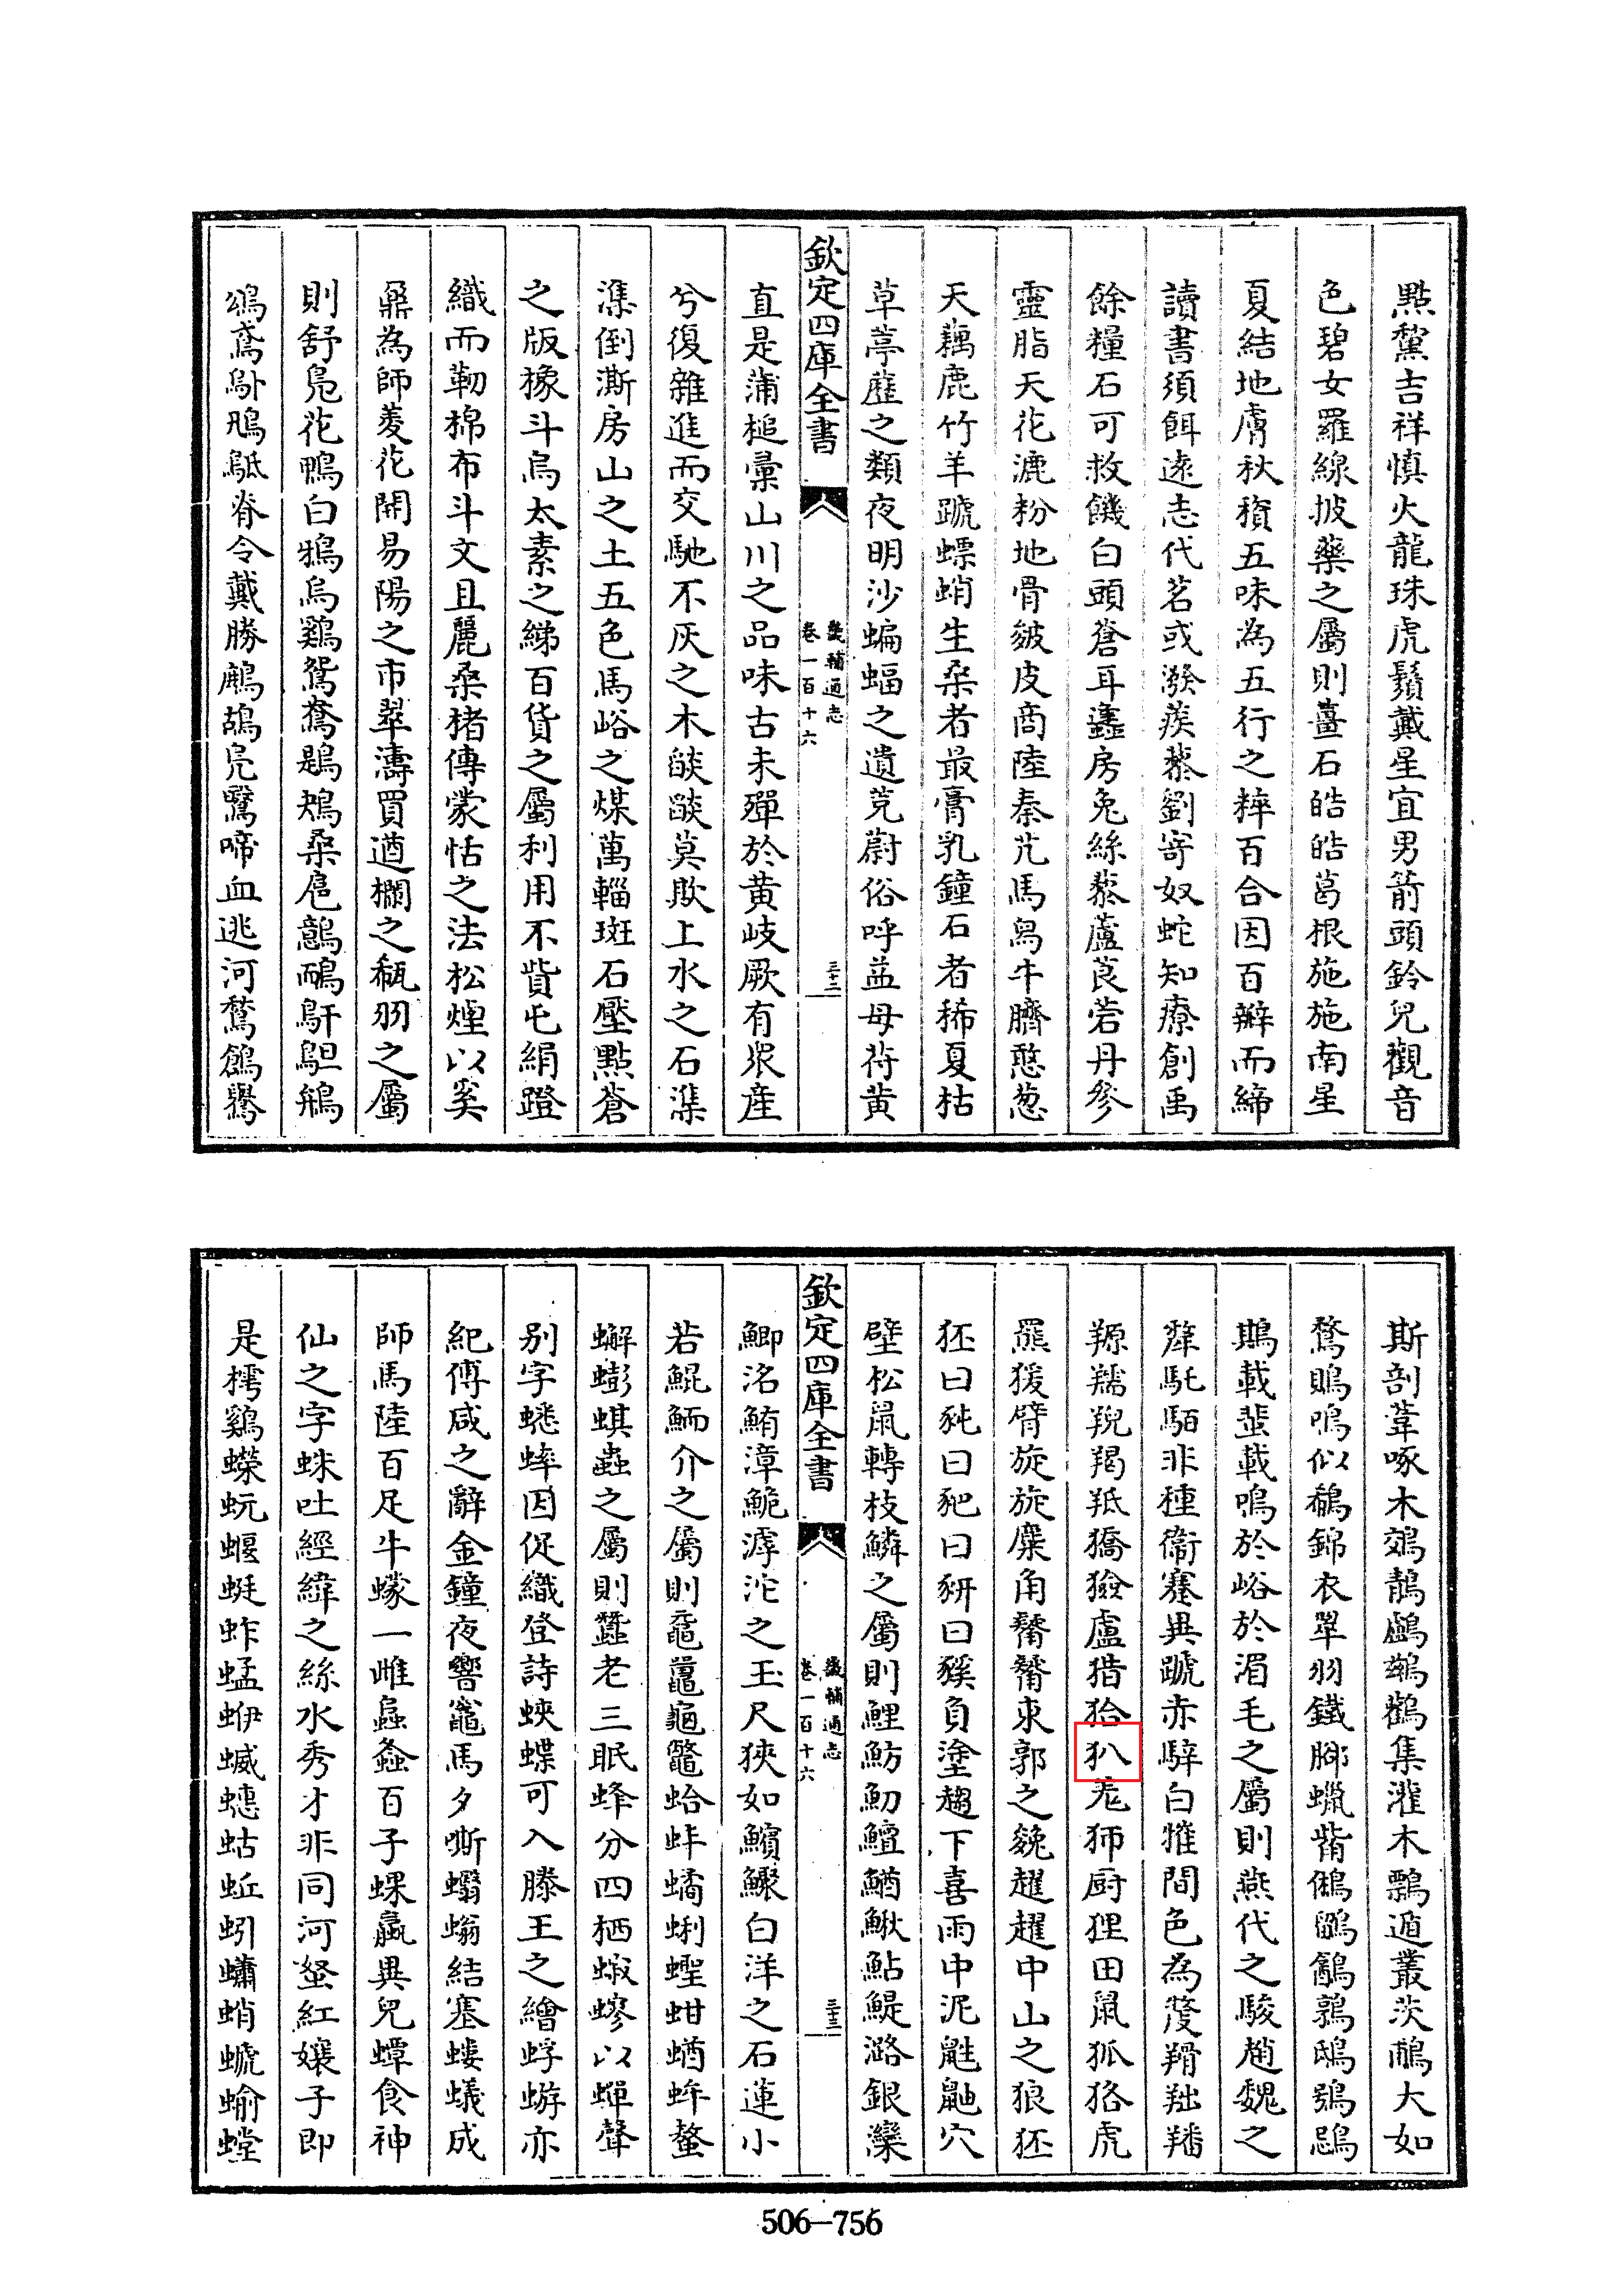 點黧吉祥慎火龍珠虎鬚戴星宜男箭頭鈴兒觀音
色碧女羅線披藥之屬則薑石皓皓葛根施施南星
夏結地膚秋積五味為五行之粹百合因百辦而締
讀書須餌遠志代茗或潑蒺藜劉寄奴蛇知療創禹
餘糧石可救饑白頭蒼耳蠭房兔絲藜蘆莨菪丹參
靈脂天花漉粉地骨皴皮商陸秦艽馬舄牛臍憨葱
天藕鹿竹羊蹏螵蛸生桑者最膏乳鐘石者稀夏枯
草葶藶之類夜明沙蝙蝠之遺茺蔚俗呼益母苻黄
欽定四庫全書
畿輔通志
卷一百十六
三十二
直是蒲槌彚山川之品味古未殫於黄岐厥有衆産
兮復雜進而交馳不灰之木燄燄莫欺上水之石濼
濼倒澌房山之土五色馬峪之煤萬輜斑石壓點蒼
之版橡斗烏太素之綈百貨之屬利用不貲屯絹蹬
織而靭棉布斗文且麗桑楮傳蒙恬之法松煙以奚
鼐為師菱花開易陽之市翠濤買遒欄之瓻羽之屬
則舒鳧花鴨白鴉烏鷄鴛鴦鶗鴂桑扈鷾鴯鳱鴠鵃
鴿鳶鳪鳭鴟脊令戴勝鷓鴣鳧鷖啼血逃河鶩鵮鸒
斯剖葦啄木鵁鶄鸕鷀鸛集灌木鸘遁叢茨鵰大如
鶩鵙鳴似鵠錦衣翠羽鐵脚蠟觜鵂鶹鷸鶉鴟鴞鶂
鵙載蜚載鳴於峪於湄毛之屬則燕代之駿趙魏之
犛馲駞非種衞蹇異蹏赤騂白犨間色為䝔羵羭羳
羱羺羬羯羝獢獫盧猎狧犰兎狮㕑狸田鼠狐狢虎
羆猨臂旋旋麋角觺觺東郭之㕙趯趯中山之狼狉
狉曰豘曰豝曰豣曰豯負塗趨下喜雨中泥鼪鼬穴
壁松鼠轉枝鱗之屬則鯉魴魛鱣鰌鰍鮎鯷潞銀灤
欽定四庫全書
畿輔通志
卷一百十六
三十三
鯽洺鮪漳鮠滹沱之玉尺狹如鱮鱮白洋之石蓮小
若鯤鮞介之屬則黿鼉龜鼈蛤蚌蟕蜊蟶蚶蝤蛑螯
蠏蟛蜞蟲之屬則蠶老三眠蜂分四栖蝬蟉以蟬聲
别字蟋蟀因促織登詩蛺蝶可入滕王之繪蜉蝣亦
紀傅咸之辭金鐘夜響竈馬夕嘶蠮螉結塞螻蟻成
師馬陸百足牛蠓一雌螽斯百子蜾蠃異兒蟫食神
仙之字蛛吐經緯之絲水秀才非同河蛩紅孃子即
是樗鷄蠑蚖蝘蜓蚱蜢蛜蝛蟪蛄蚯蚓蠨蛸蠦蝓螳